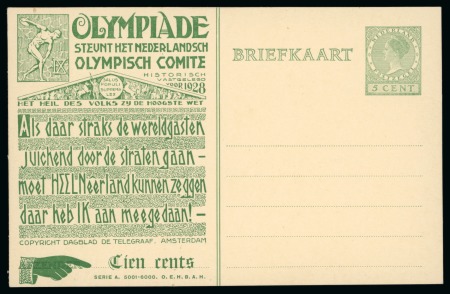 OLYMPIADE
STEUNT HET NEDERLANDSCH
OLYMPISCH COMITE
HISTORISCH
VASTGELEGD
VOOR 1928
IX
SALUS
POPULI
SUPREMA
LEX
HET HEIL DES VOLKS ZY DE HOOGSTE WET
Als daar straks de wereldgasten
juichend door de straten gaan —
moet HEEL Neerland kunnen zeggen
daar heb IK aan meegedaan! —
COPYRIGHT DAGBLAD DE TELEGRAAF, AMSTERDAM
Tien cents
SERIE A. 5001-6000. O.E.H.B.A.H.
BRIEFKAART
5 CENT